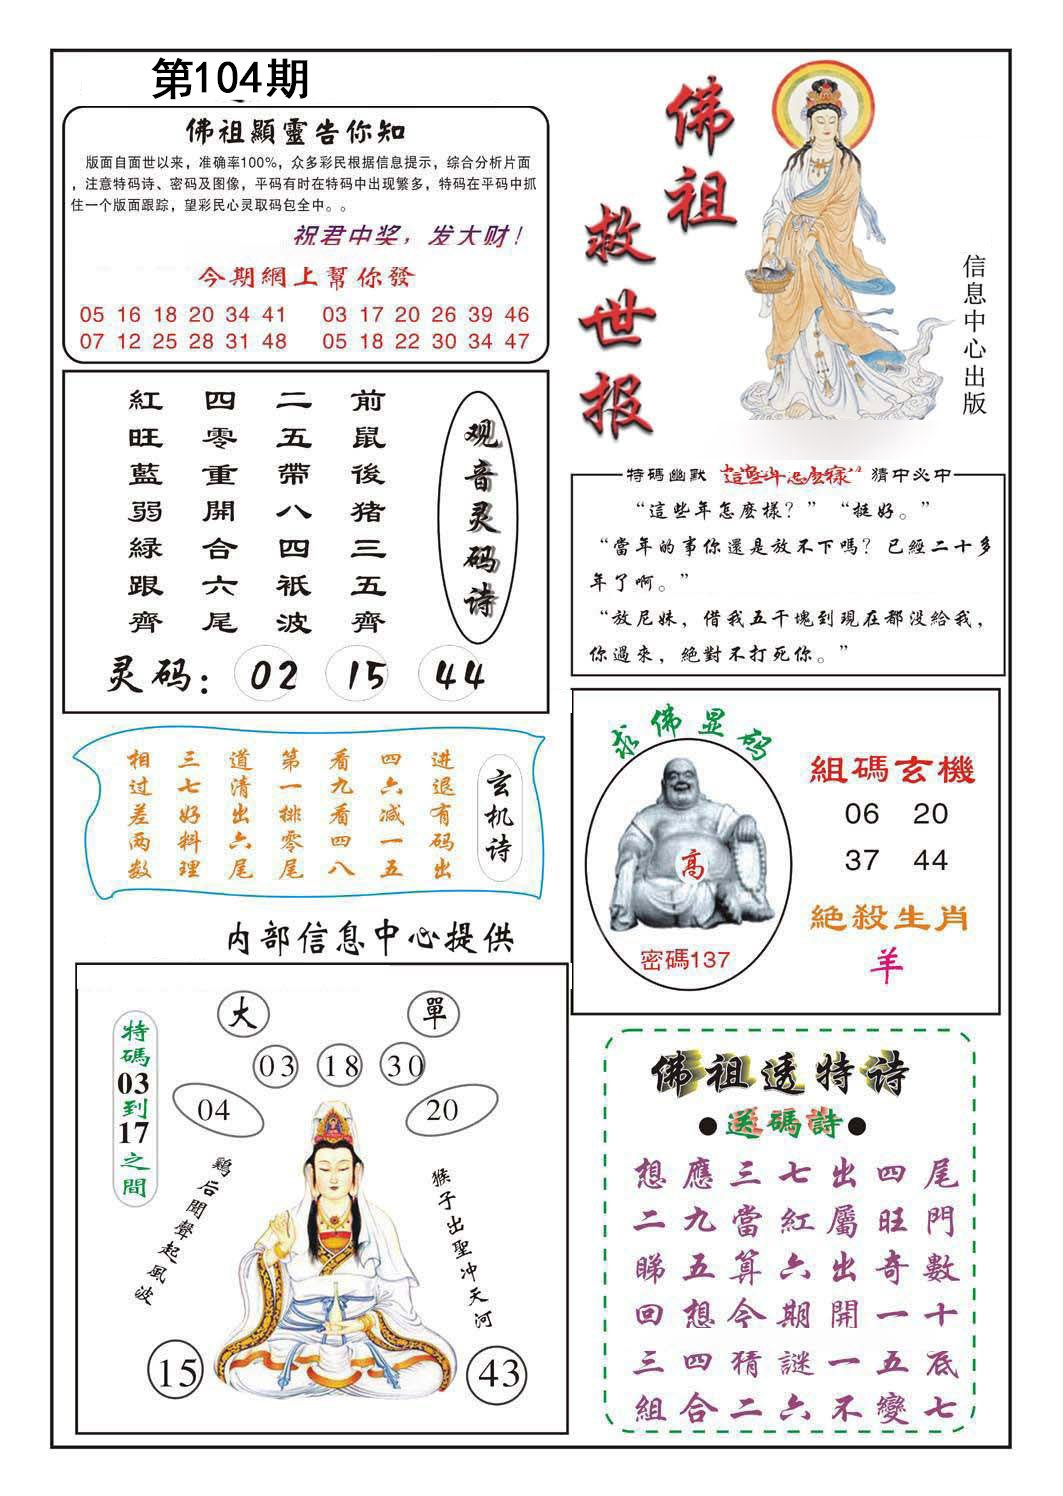 第104期
佛祖顯靈告你知
版面自面世以来，准确率100%，众多彩民根据信息提示，综合分析片面
，注意特码诗、密码及图像，平码有时在特码中出现繁多，特码在平码中抓
住一个版面跟踪，望彩民心灵取码包全中。。
祝君中奖，发大财！
今期網上幫你發
05 16 18 20 34 41 03 17 20 26 39 46
07 12 25 28 31 48 05 18 22 30 34 47
佛祖
救世报
信息中心出版
观音灵码诗
前鼠後猪三五齊
二五帶八四祇波
四零重開合六尾
紅旺藍弱緑跟齊
灵码：02 15 44
特碼幽默 “這些年怎麽樣” 猜中必中
“這些年怎麽樣？”“挺好。”
“當年的事你還是放不下嗎？已經二十多
年了啊。”
“放尼妹，借我五千塊到現在都没給我，
你過來，絶對不打死你。”
玄机诗
进退有码出
四六减一五
看九看四八
第一排零尾
道清出六尾
三七好料理
相过差两数
求佛显码
高
密碼137
組碼玄機
06 20
37 44
絶殺生肖
羊
内部信息中心提供
特碼03到17之間
大 單
03 18 30
04 20
鷄后聞聲起風波
猴子出聖冲天河
15 43
佛祖透特诗
●送碼詩●
想應三七出四尾
二九當紅屬旺門
睇五算六出奇數
回想今期開一十
三四猜謎一五底
組合二六不變七